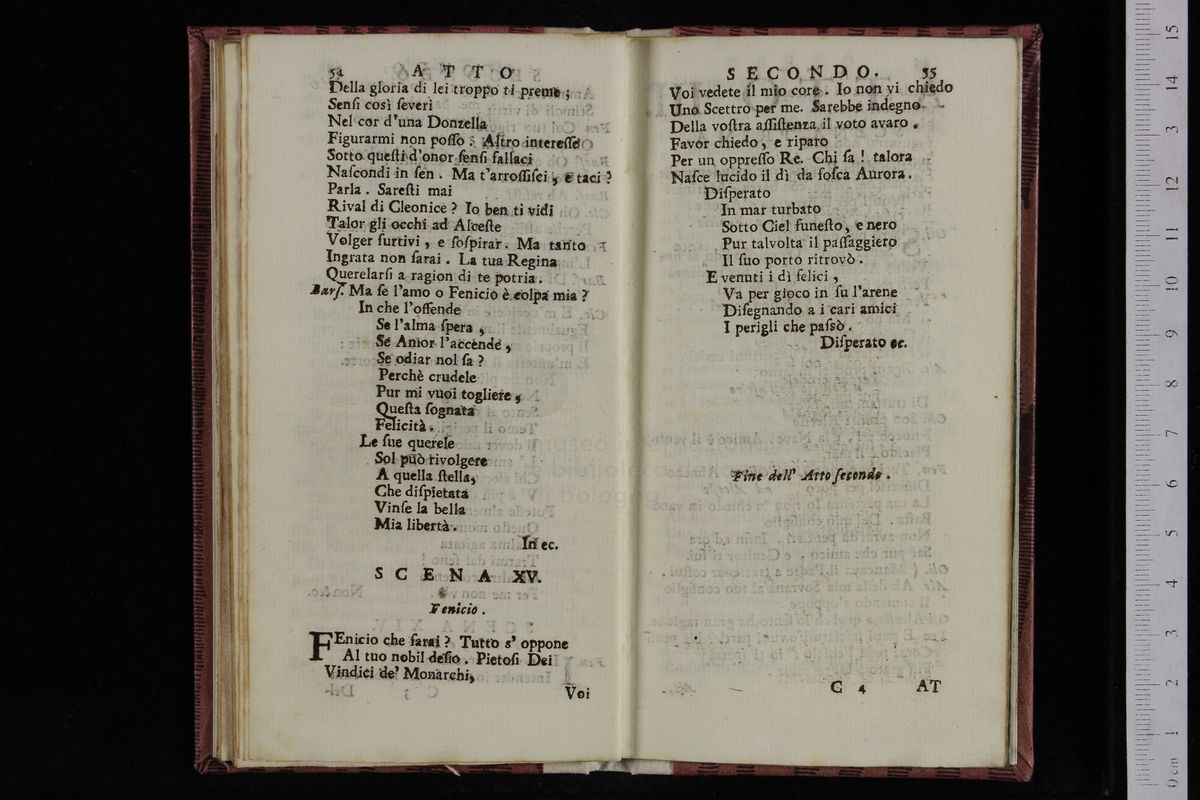 54 ATTO
Della gloria di lei troppo ti preme ;
Senſi così ſeveri
Nel cor d'una Donzella
Figurarmi non poſſo : Altro intereſſe
Sotto queſti d'onor ſenſi fallaci
Naſcondi in ſen . Ma t'arroſſiſci , e taci ?
Parla . Sareſti mai
Rival di Cleonice ? Io ben ti vidi
Talor gli occhi ad Alceſte
Volger furtivi , e ſoſpirar . Ma tanto
Ingrata non ſarai . La tua Regina
Querelarſi a ragion di te potria .
Barſ. Ma ſe l'amo o Fenicio è colpa mia ?
In che l'offende
Se l'alma ſpera ,
Se Amor l'accende ,
Se odiar nol ſa ?
Perchè crudele
Pur mi vuoi togliere ,
Queſta ſognata
Felicità .
Le ſue querele
Sol può rivolgere
A quella ſtella,
Che diſpietata
Vinſe la bella
Mia libertà .
In ec.
SCENA XV.
Fenicio .
FEnicio che farai ? Tutto s' oppone
Al tuo nobil deſio . Pietoſi Dei
Vindici de' Monarchi,
Voi
SECONDO. 55
Voi vedete il mio core . Io non vi chiedo
Uno Scettro per me. Sarebbe indegno
Della voſtra aſſiſtenza il voto avaro .
Favor chiedo , e riparo
Per un oppreſſo Re. Chi ſa ! talora
Naſce lucido il dì da foſca Aurora .
Diſperato
In mar turbato
Sotto Ciel funeſto , e nero
Pur talvolta il paſſaggiero
Il ſuo porto ritrovò .
E venuti i dì felici ,
Va per gioco in ſu l'arene
Diſegnando a i cari amici
I perigli che paſsò .
Diſperato ec.
Fine dell' Atto ſecondo .
C 4 AT